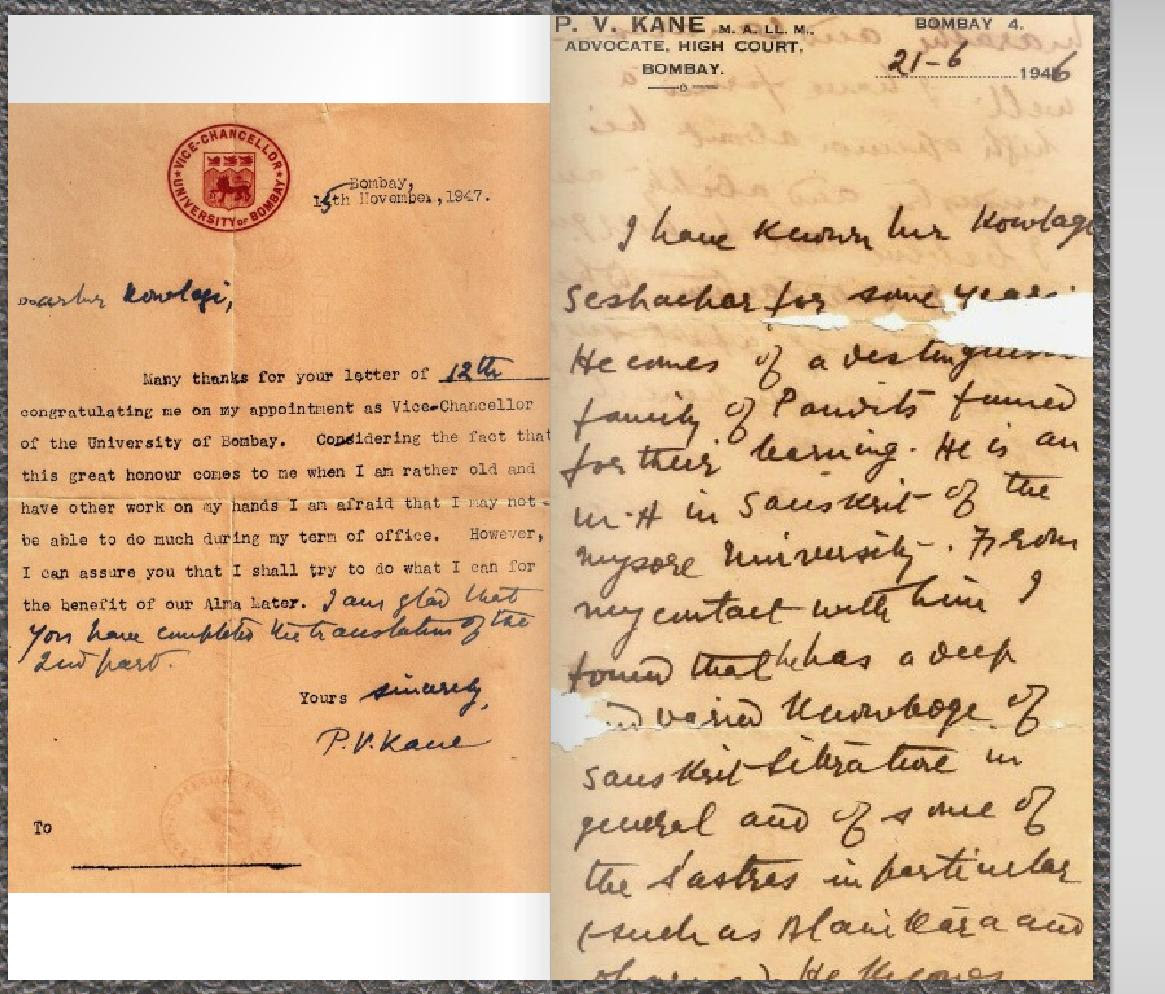 VICE-CHANCELLOR
UNIVERSITY OF BOMBAY
Bombay,
15th November, 1947.
Kowlagi,
Many thanks for your letter of 12th
congratulating me on my appointment as Vice-Chancellor
of the University of Bombay. Considering the fact that
this great honour comes to me when I am rather old and
have other work on my hands I am afraid that I may not
be able to do much during my term of office. However,
I can assure you that I shall try to do what I can for
the benefit of our Alma Mater. I am glad that
you have completed the translation of the
2nd part.
Yours sincerely,
P. V. Kane
To
P. V. KANE M. A. LL. M.,
ADVOCATE, HIGH COURT,
BOMBAY.
BOMBAY 4.
21-6 1946
I have known Mr Kowlagi
Seshachar for some years.
He comes of a distinguished
family of Pandits famed
for their learning. He is an
M.A in Sanskrit of the
Mysore University. From
my contact with him I
found that he has a deep
and varied knowledge of
Sanskrit literature in
general and of some of
the Sastras in particular
(such as Alamkāra and
He knows